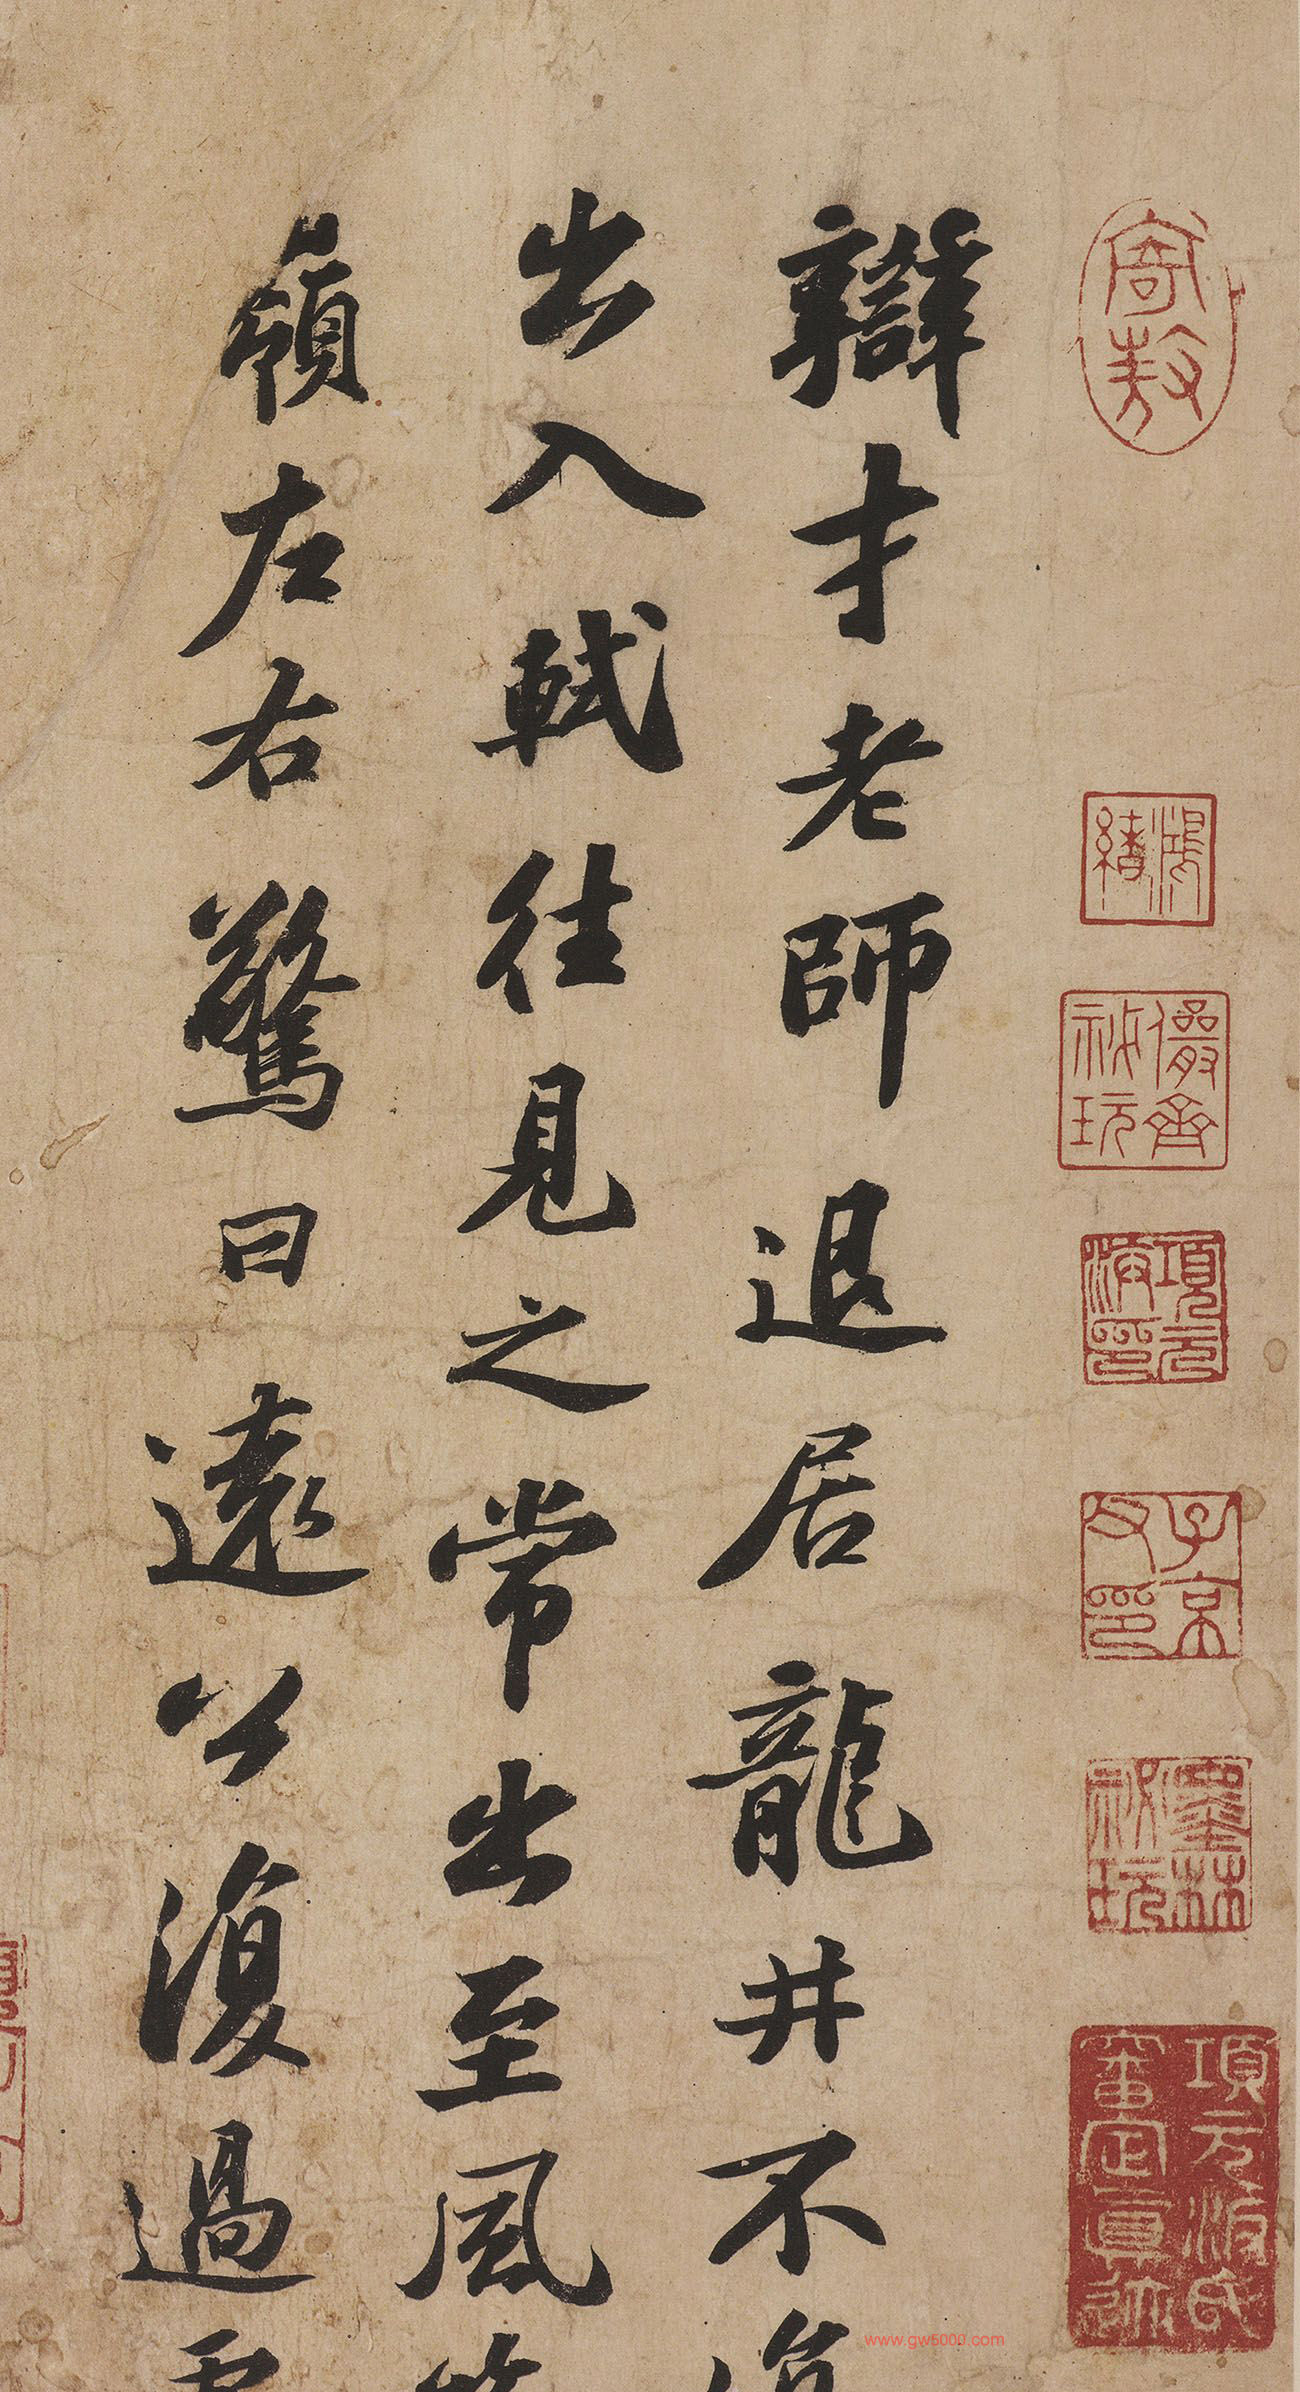 寄敖
鴻緒
儼齋秘玩
項元汴印
子京父印
墨林秘玩
項元汴氏審定真迹
辯才老師退居龍井不復
出入軾往見之常出至風篁
嶺左右驚曰遠公復過虎
www.gw5000.com